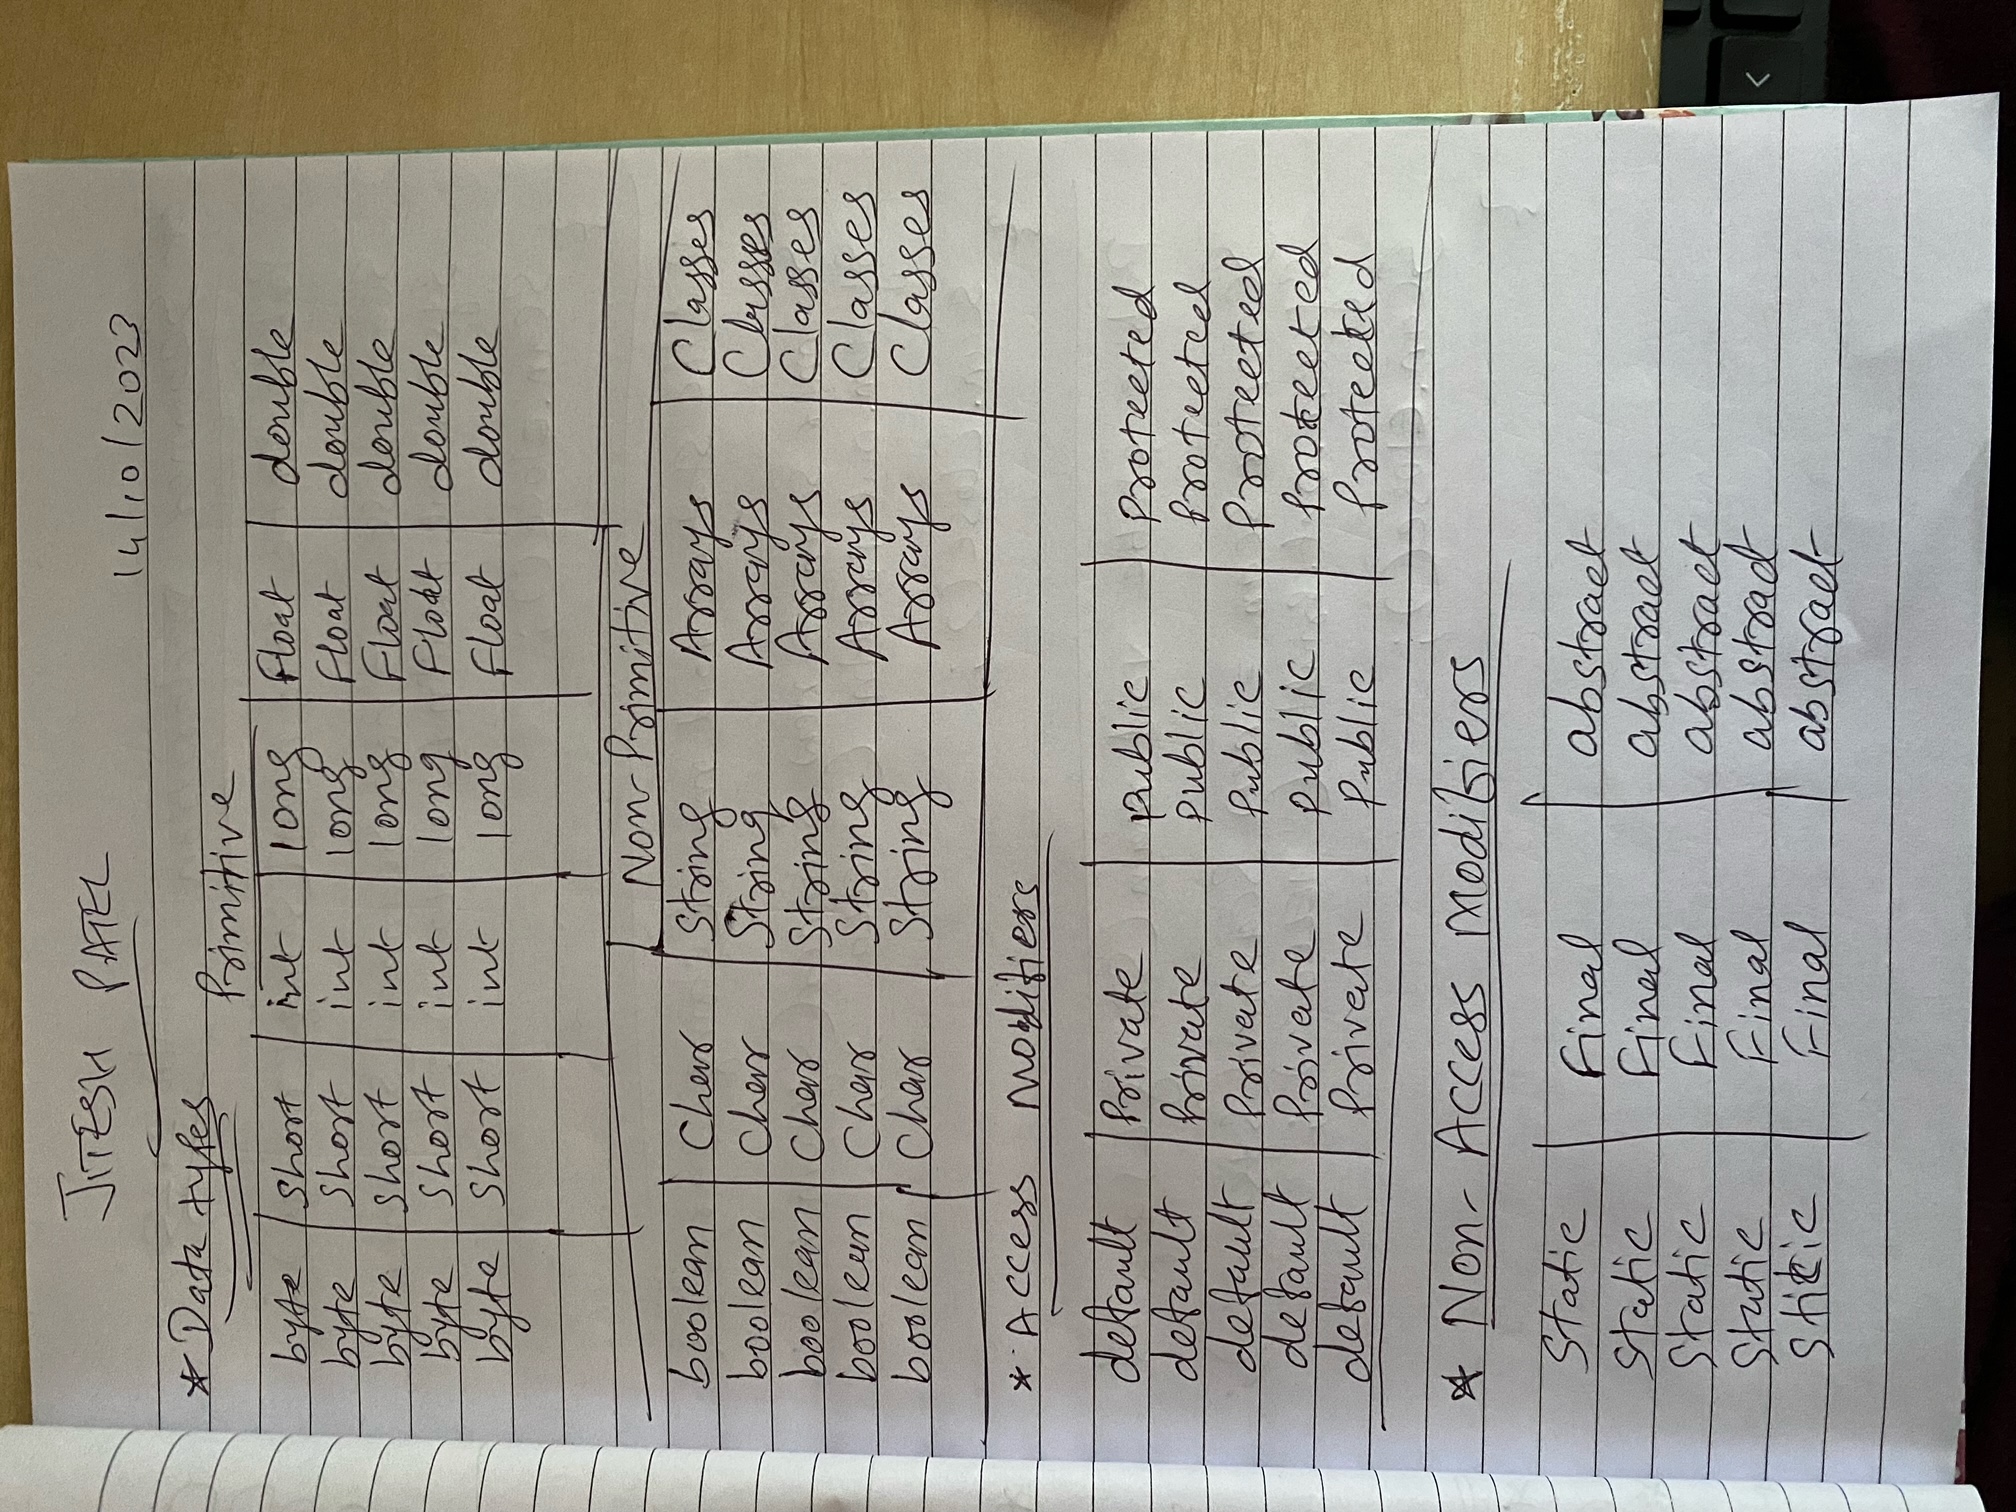 JITESH PATEL
14/10/2023
* Data types
Primitive
byte short int long float double
byte short int long float double
byte short int long float double
byte short int long float double
byte short int long float double
Non-Primitive
boolean Char String Arrays Classes
boolean Char String Arrays Classes
boolean Char String Arrays Classes
boolean Char String Arrays Classes
boolean Char String Arrays Classes
* Access Modifiers
default Private public protected
default Private public protected
default Private Public protected
default Private public protected
default Private Public protected
* Non-Access Modifiers
Static Final abstract
Static Final abstract
Static Final abstract
Static Final abstract
Static Final abstract